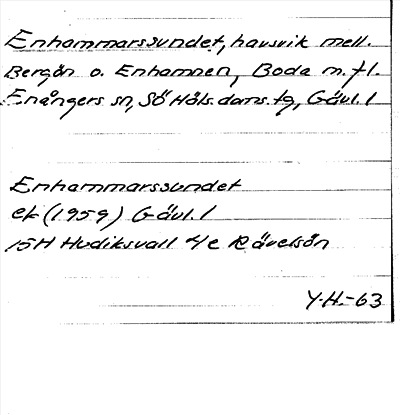 Enhammarssundet, havsvik mell.
Bergön o. Enhamnen, Boda m.fl.
Enångers sn, Sö Häls. doms. tg, Gävl. l
Enhammarssundet
ek (1959) Gävl. l
15H Hudiksvall 4/e Rävelsön
Y.H.-63